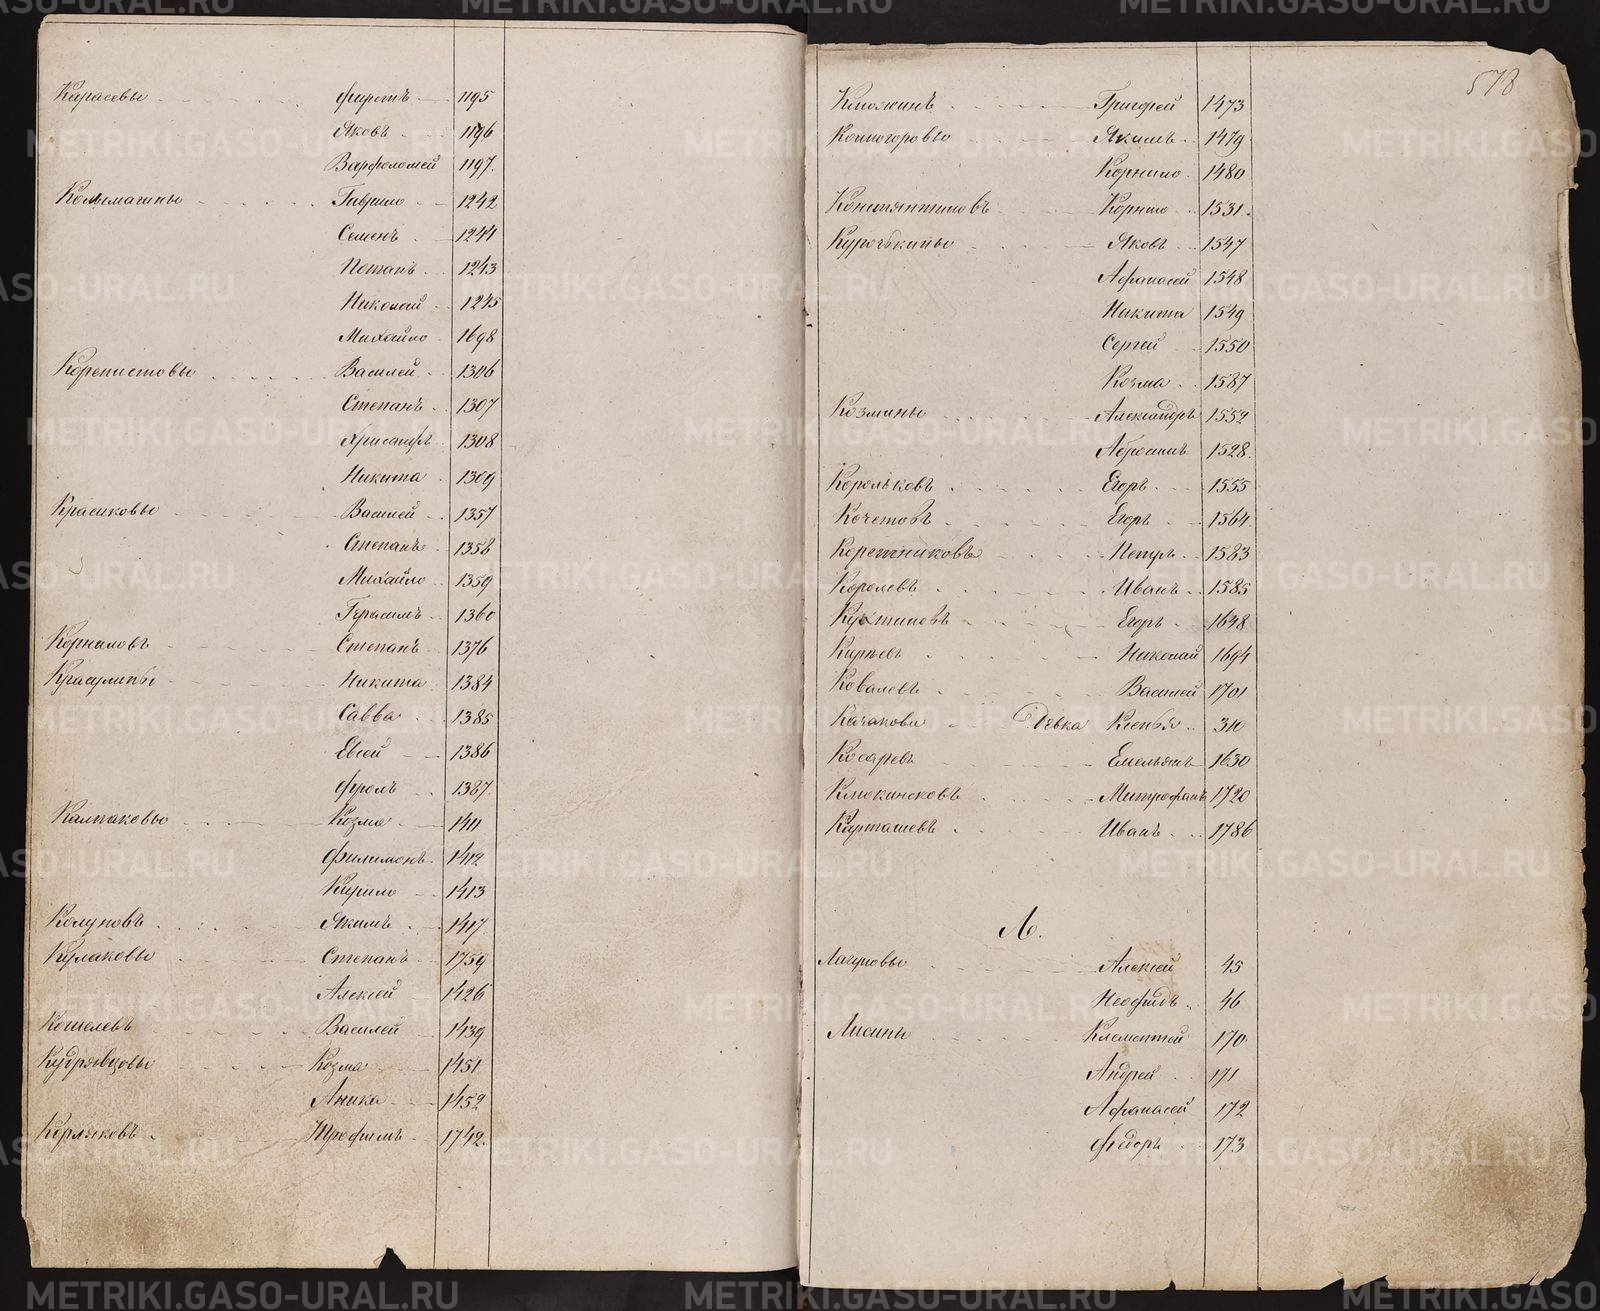 Карасевы Фирстъ 1195
Яковъ 1196
Варфоломей 1197.
Колымагины Гаврило 1242
Семенъ 1244
Потапъ 1243
Николай 1245
Михайло 1698
Коренистовы Василей 1306
Степанъ 1307
Хрисанфъ 1308
Никита 1309
Красиковы Василей 1357
Степанъ 1358
Михайло 1359
Герасимъ 1360
Корниловъ Степанъ 1376
Красулины Никита 1384
Савва 1385
Евсей 1386
Фролъ 1387
Калпаковы Козма 1411
Филимонъ 1412
Кирило 1413
Колуповъ Якимъ 1417
Кулаковы Степанъ 1759
Алексей 1426
Кошелевъ Василей 1439
Кудрявцовы Козма 1451
Аника 1452
Кирляковъ Трофимъ 1742.
578
Клюжинъ Григорей 1473
Конногоровы Якимъ 1479
Корнило 1480
Констянтиновъ Корнило 1531.
Курочькины Яковъ 1547
Афанасей 1548
Никита 1549
Сергей 1550
Козма 1587
Козмины Александръ 1552
Абросимъ 1528.
Корольковъ Егоръ 1555
Кочетовъ Егоръ 1564
Коретниковъ 1583
Королевъ Иванъ 1585
Кухтиновъ Егоръ 1648
Кирѣевъ Николай 1694
Ковалевъ Василей 1701
Казакова Девка 310
Косаревъ Емельянъ 1630
Клюкинсковъ Митрофанъ 1720
Карташевъ Иванъ 1786
Л.
Лагуновы Алексей 45
Неофидъ 46
Лисины Клементей 170
Андрей 171
Афанасей 172
Федоръ 173
METRIKI.GASO-URAL.RU